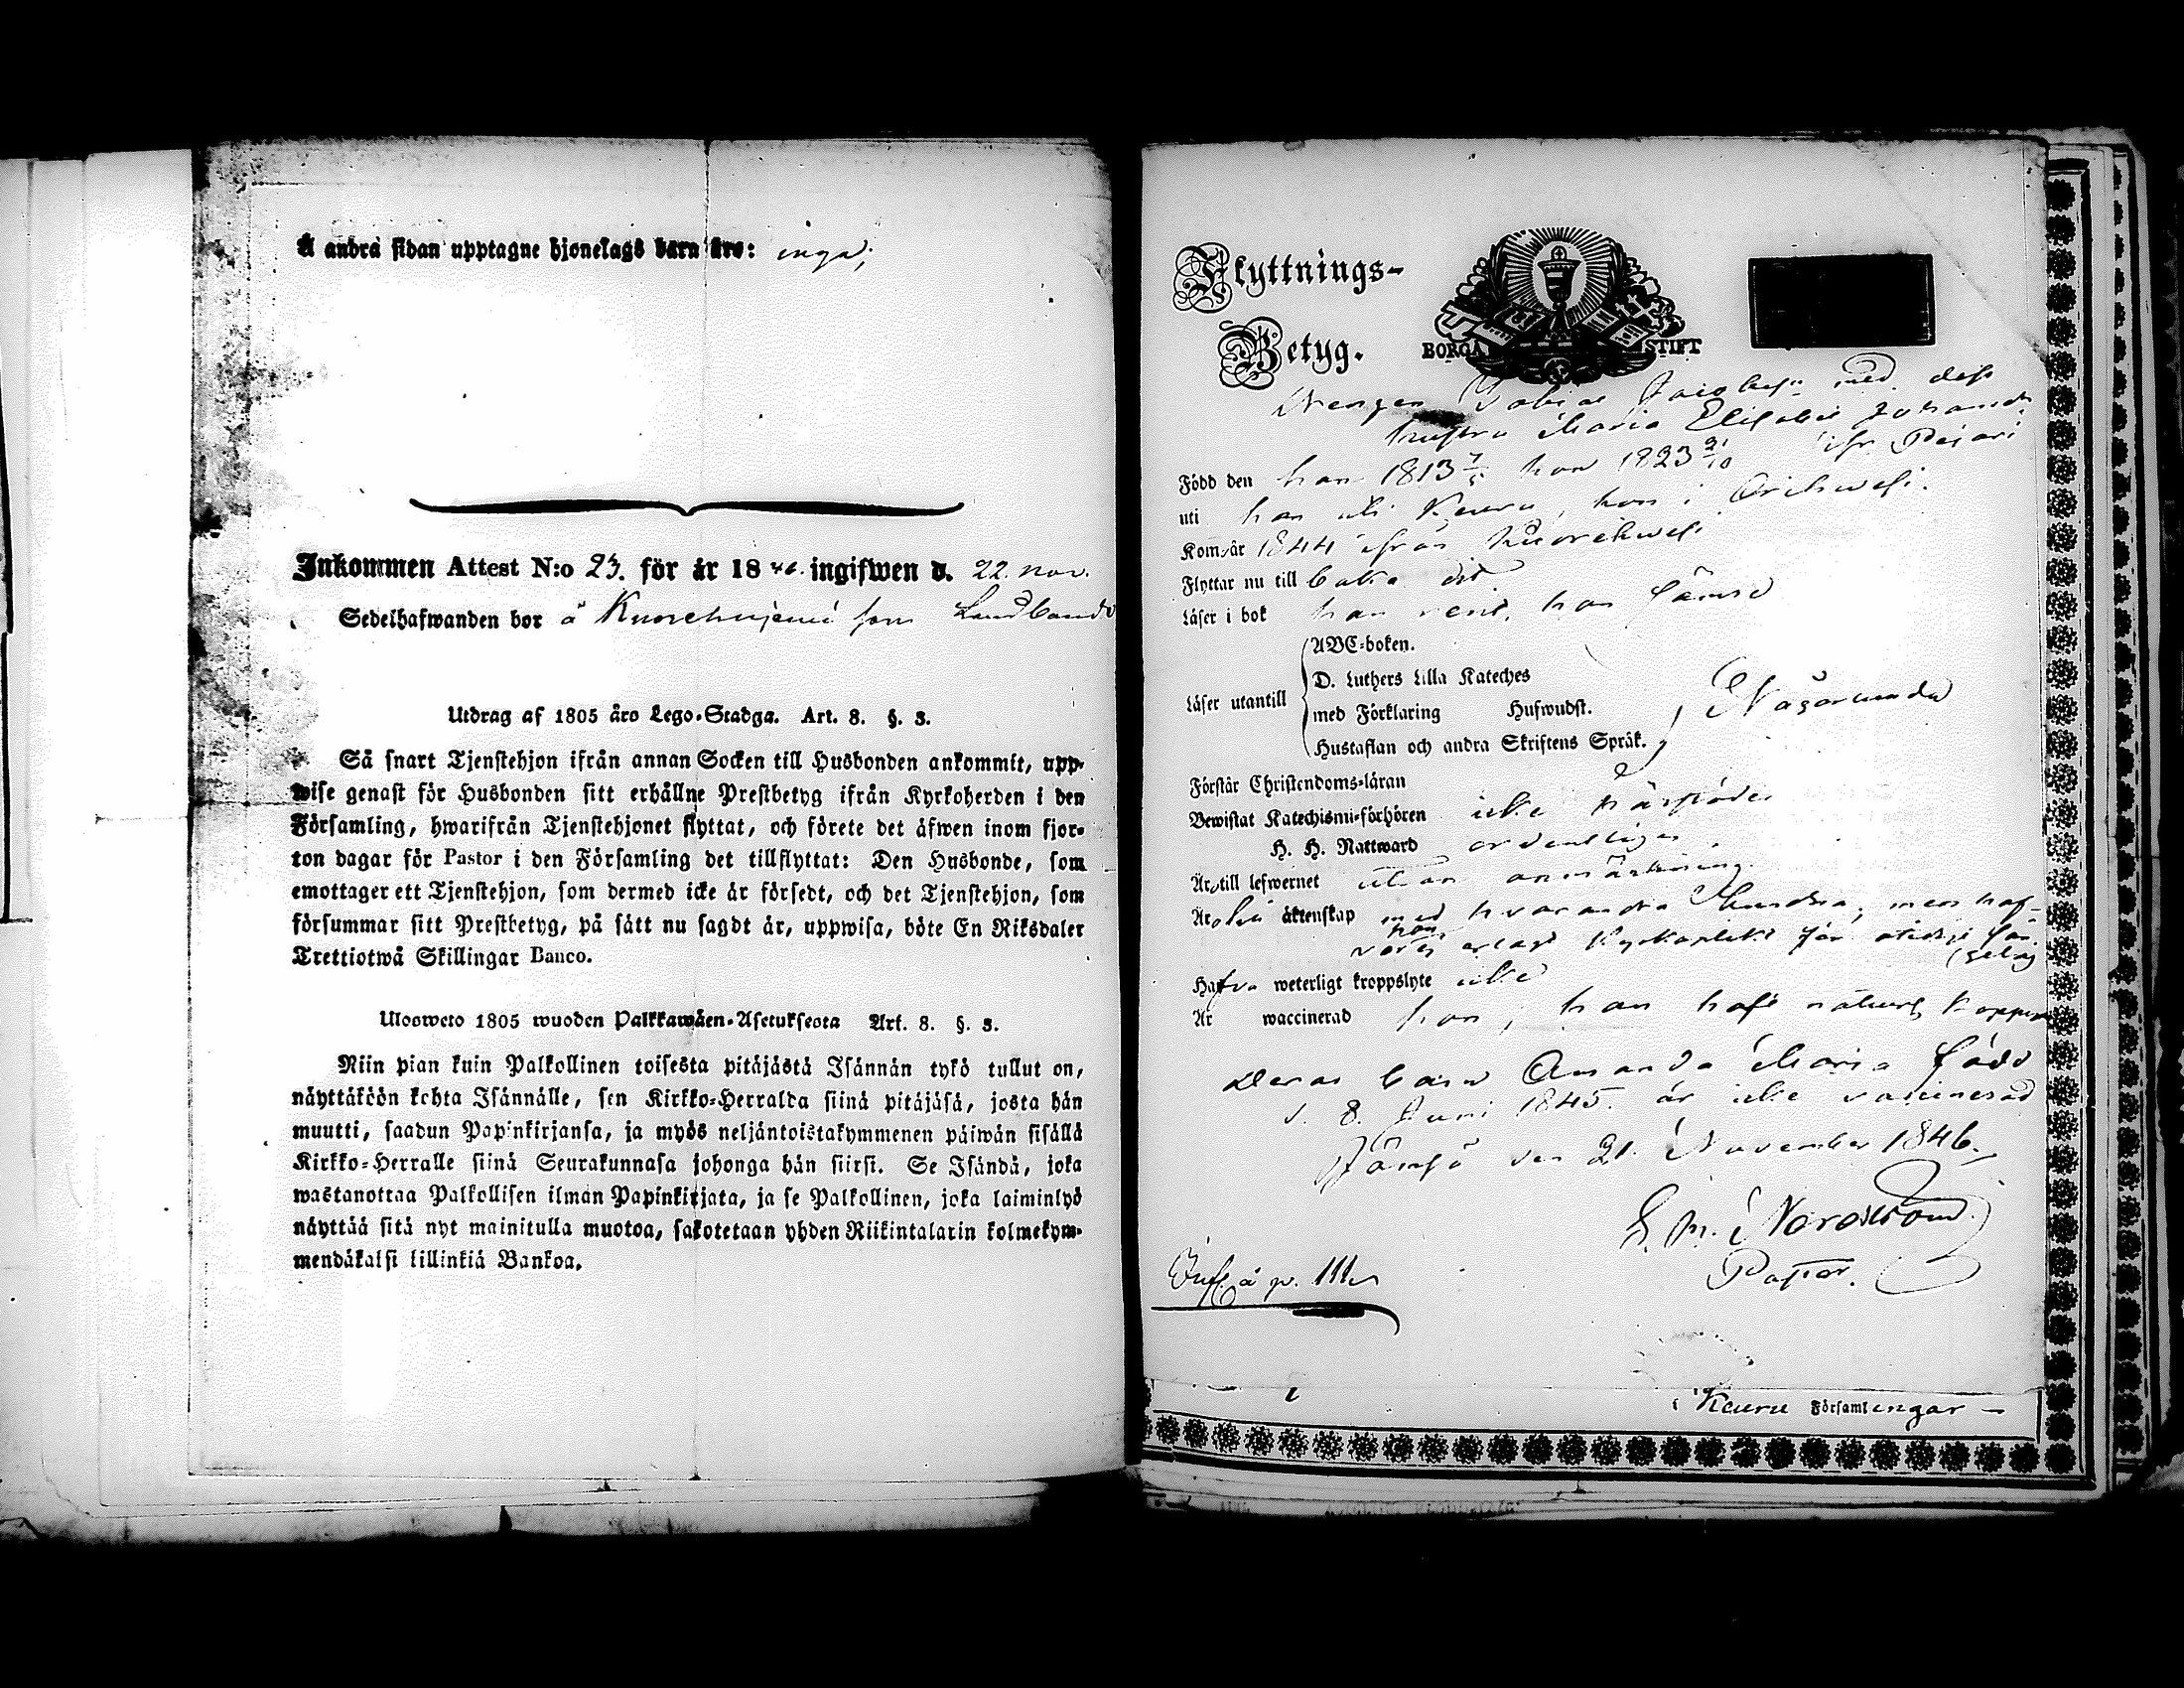 Å andra sidan upptagne hjonelags barn äro: inga;
Inkommen Attest N:o 23. för år 1846. ingifwen d. 22. nov.
Sedelhafwanden bor å
Utdrag af 1805 års Lego-Stadga. Art. 8. §. 3.
Så snart Tjenstehjon ifrån annan Socken till Husbonden ankommit, upp-
wise genast för Husbonden sitt erhållne Prestbetyg ifrån Kyrkoherden i den
Församling, hwarifrån Tjenstehjonet flyttat, och förete det äfwen inom fjor-
ton dagar för Pastor i den Församling det tillflyttat: Den Husbonde, som
emottager ett Tjenstehjon, som dermed icke är försedt, och det Tjenstehjon, som
försummar sitt Prestbetyg, på sätt nu sagdt är, uppwisa, böte En Riksdaler
Trettiotwå Skillingar Banco.
Ulosweto 1805 wuoden Palkkawäen-Asetuksesta Art. 8. §. 3.
Niin pian kuin Palkollinen toisesta pitäjästä Isännän tykö tullut on,
näyttäköön kohta Isännälle, sen Kirkko-Herralda siinä pitäjäsä, josta hän
muutti, saadun Papinkirjansa, ja myös neljäntoistakymmenen päiwän sisällä
Kirkko-Herralle siinä Seurakunnasa johonga hän siirsi. Se Isändä, joka
wastanottaa Palkollisen ilman Papinkirjata, ja se Palkollinen, joka laiminlyö
näyttää sitä nyt mainitulla muotoa, sakotetaan yhden Riikintalarin kolmekym-
mendäkaksi killinkiä Bankoa.
Flyttnings-
Betyg.
BORGÅ STIFT
Drengen Tobias Jacobss. med dess
hustru Maria Elisabet Johansdr.
ifr. Pajari
Född den han 1813 7/5 hon 1823 21/10
uti han uti Keuru, hon i Orihwesi.
Kom år 1844 ifrån
Flyttar nu till baka dit
Läser i bok han hon
Läser utantill
ABC-boken.
D. Luthers Lilla Kateches
med Förklaring Hufwudst.
Hustaflan och andra Skriftens Språk.
Någorlunda
Förstår Christendoms-läran
Bewistat Katechismi-förhören icke härstädes
H. H. Nattward ordentligen
Äro till lefwernet utan anmärkning.
Äro äktenskap med hvarandra
Hafva weterligt kroppslyte icke
Är waccinerad hon, han haft naturl. koppor
Deras barn Amanda Maria född
d. 8. Juni 1845. är icke vaccinerad
Jämsä den 21. November 1846.
Nordstrand.
Pastor.
Inf. å p. 111
i Keuru Församlengar